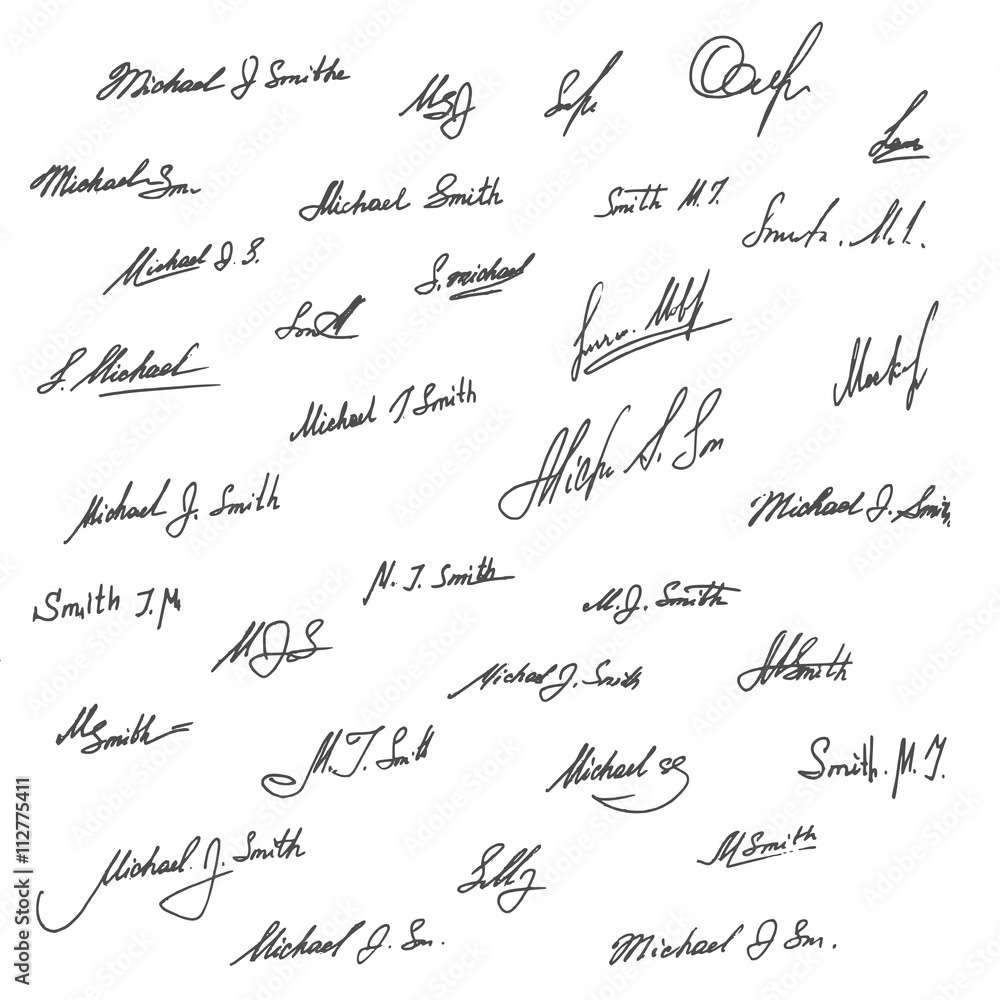 Michael J Smithe
MSJ
Michael Sm.
Michael Smith
Smith M.J.
Michael J. S.
S. Michael
S. Michael
Michael J Smith
Michael J. Smith
Michael J. Smith
M. J. Smith
Smith J.M
M.J. Smith
MJS
Michael J. Smith
MSmith
MSmith
M.J. Smith
Michael
Smith. M. J.
Michael. J. Smith
MSmith
Michael J. Sm.
Michael J Sm.
Adobe Stock | #112775411